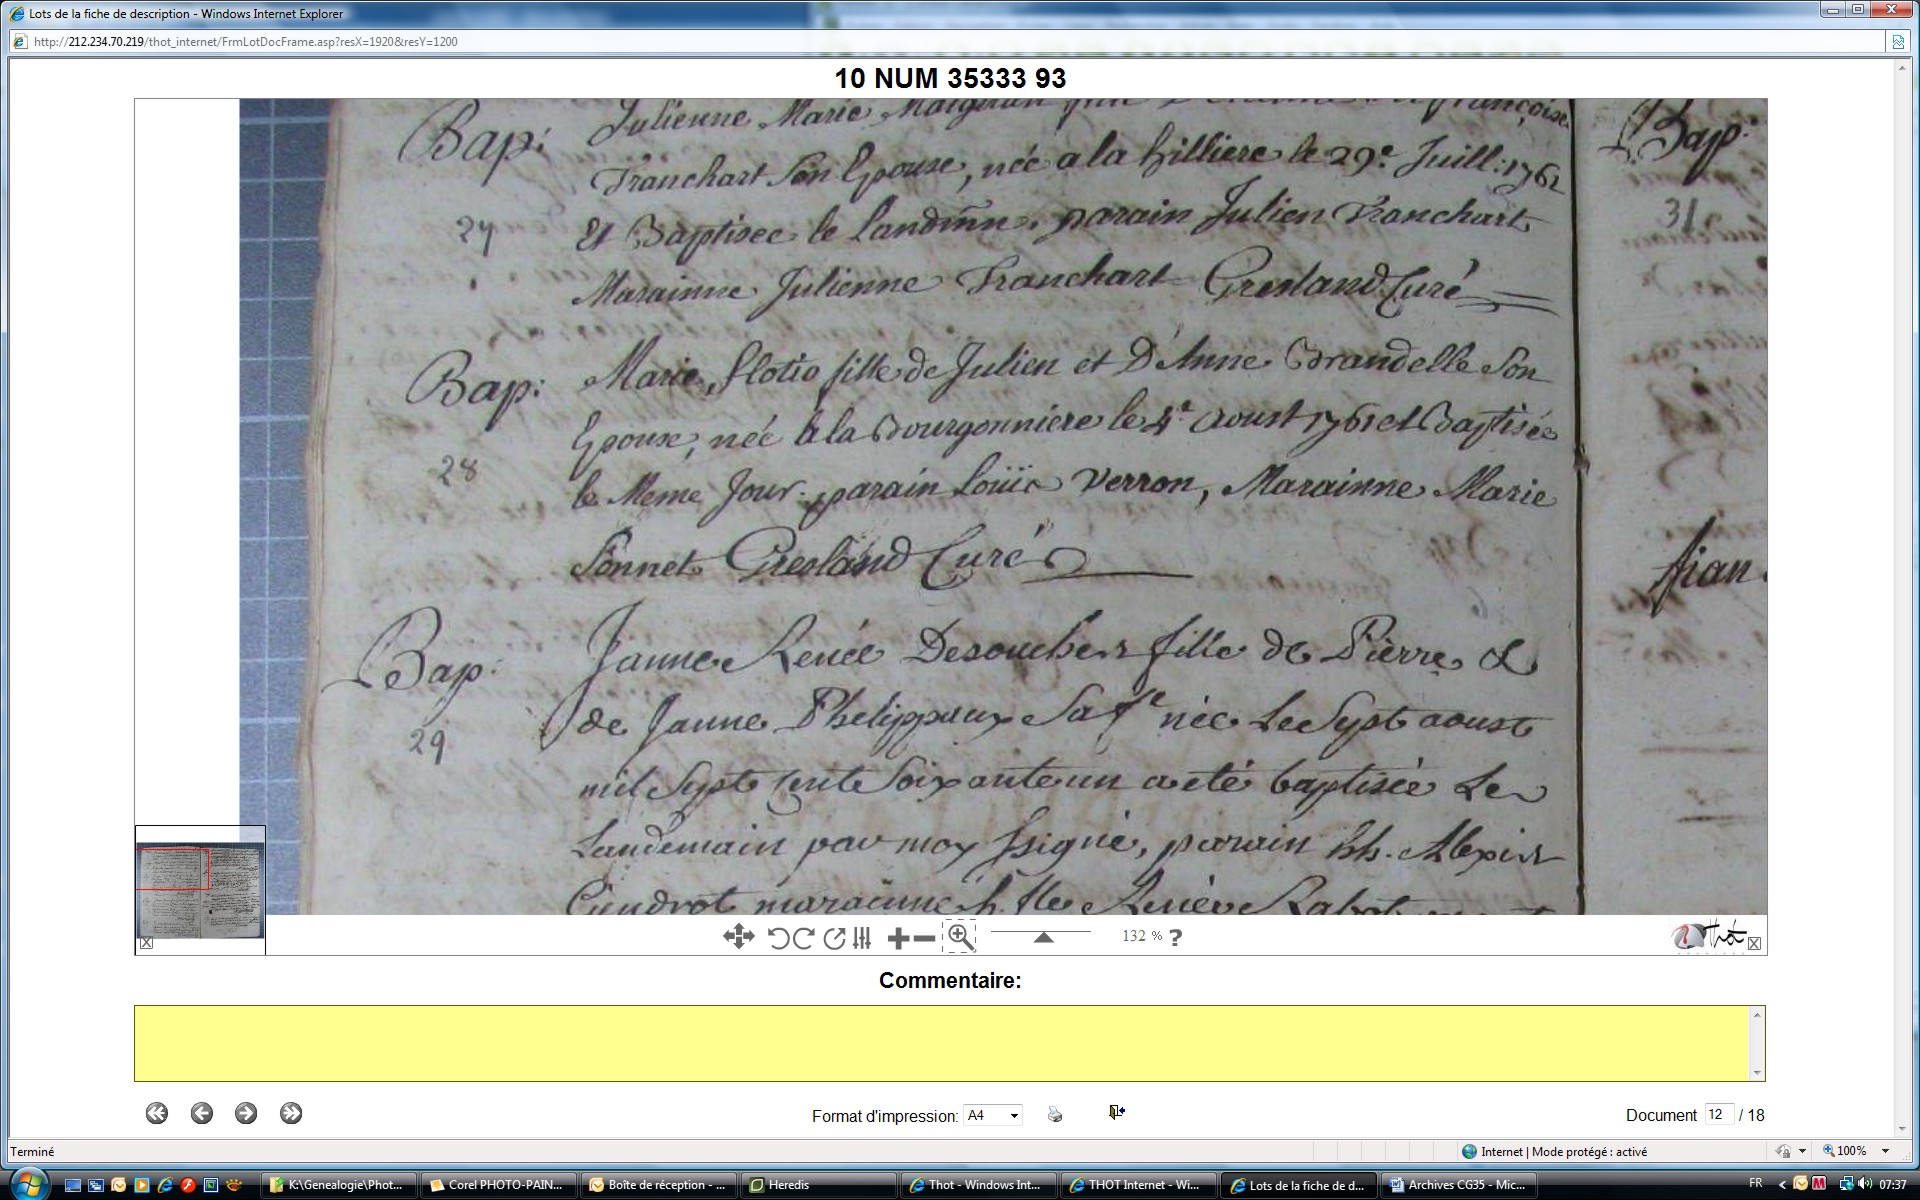 Lots de la fiche de description - Windows Internet Explorer
http://212.234.70.219/thot_internet/FrmLotDocFrame.asp?resX=1920&resY=1200
10 NUM 35333 93
Bap: Julienne Marie Maignan fille D'Etienne et de françoise
Tranchart Son Epouse, née a la hilliere le 29e Juill: 1761
27 Et Baptisee le Landmn. parain Julien Tranchart
Marainne Julienne Tranchart Gresland Curé
Bap: Marie flotio fille de Julien et D'Anne Brandelle Son
Epouse, née à la Bourgonniere le 4e aoust 1761 et Baptisée
28 le Meme Jour. parain Loüis Verron, Marainne Marie
Sonnet Gresland Curé
Bap: Janne Renée Desouches fille de Pierre &
de Janne Phelippeux Sa fe née Le Sept aoust
29 mil Sept cent Soixante un a eté baptisée Le
Landemain par moy Ssigné, parain hh. Alexis
Gendrot maraine h. fle Renée Rabot
Bap:
31
132 %
?
Thot
Commentaire:
Format d'impression: A4
Document 12 / 18
Terminé
Internet | Mode protégé : activé
100%
K:\Genealogie\Phot...
Corel PHOTO-PAIN...
Boîte de réception - ...
Heredis
Thot - Windows Int...
THOT Internet - Wi...
Lots de la fiche de d...
Archives CG35 - Mic...
FR
07:37